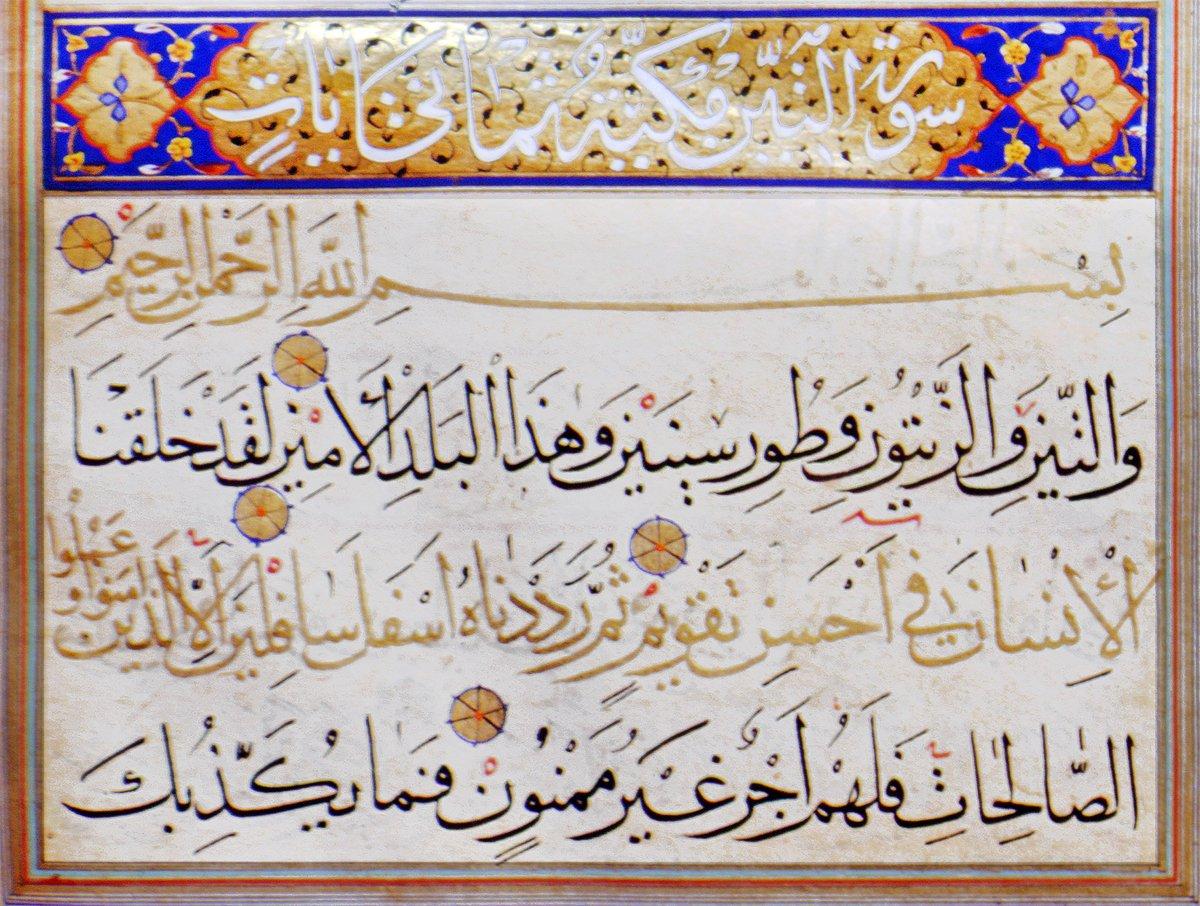 سورة التين مكية ثماني ايات
بسم الله الرحمن الرحيم
وَالتِّينِ وَالزَّيْتُونِ وَطُورِ سِينِينَ وَهَذَا الْبَلَدِ الْأَمِينِ لَقَدْ خَلَقْنَا
الْإِنْسَانَ فِي أَحْسَنِ تَقْوِيمٍ ثُمَّ رَدَدْنَاهُ اَسْفَلَ سَافِلِينَ إِلَّا الَّذِينَ اٰمَنُوا وَعَمِلُوا
الصَّالِحَاتِ فَلَهُمْ أَجْرٌ غَيْرُ مَمْنُونٍ فَمَا يُكَذِّبُكَ